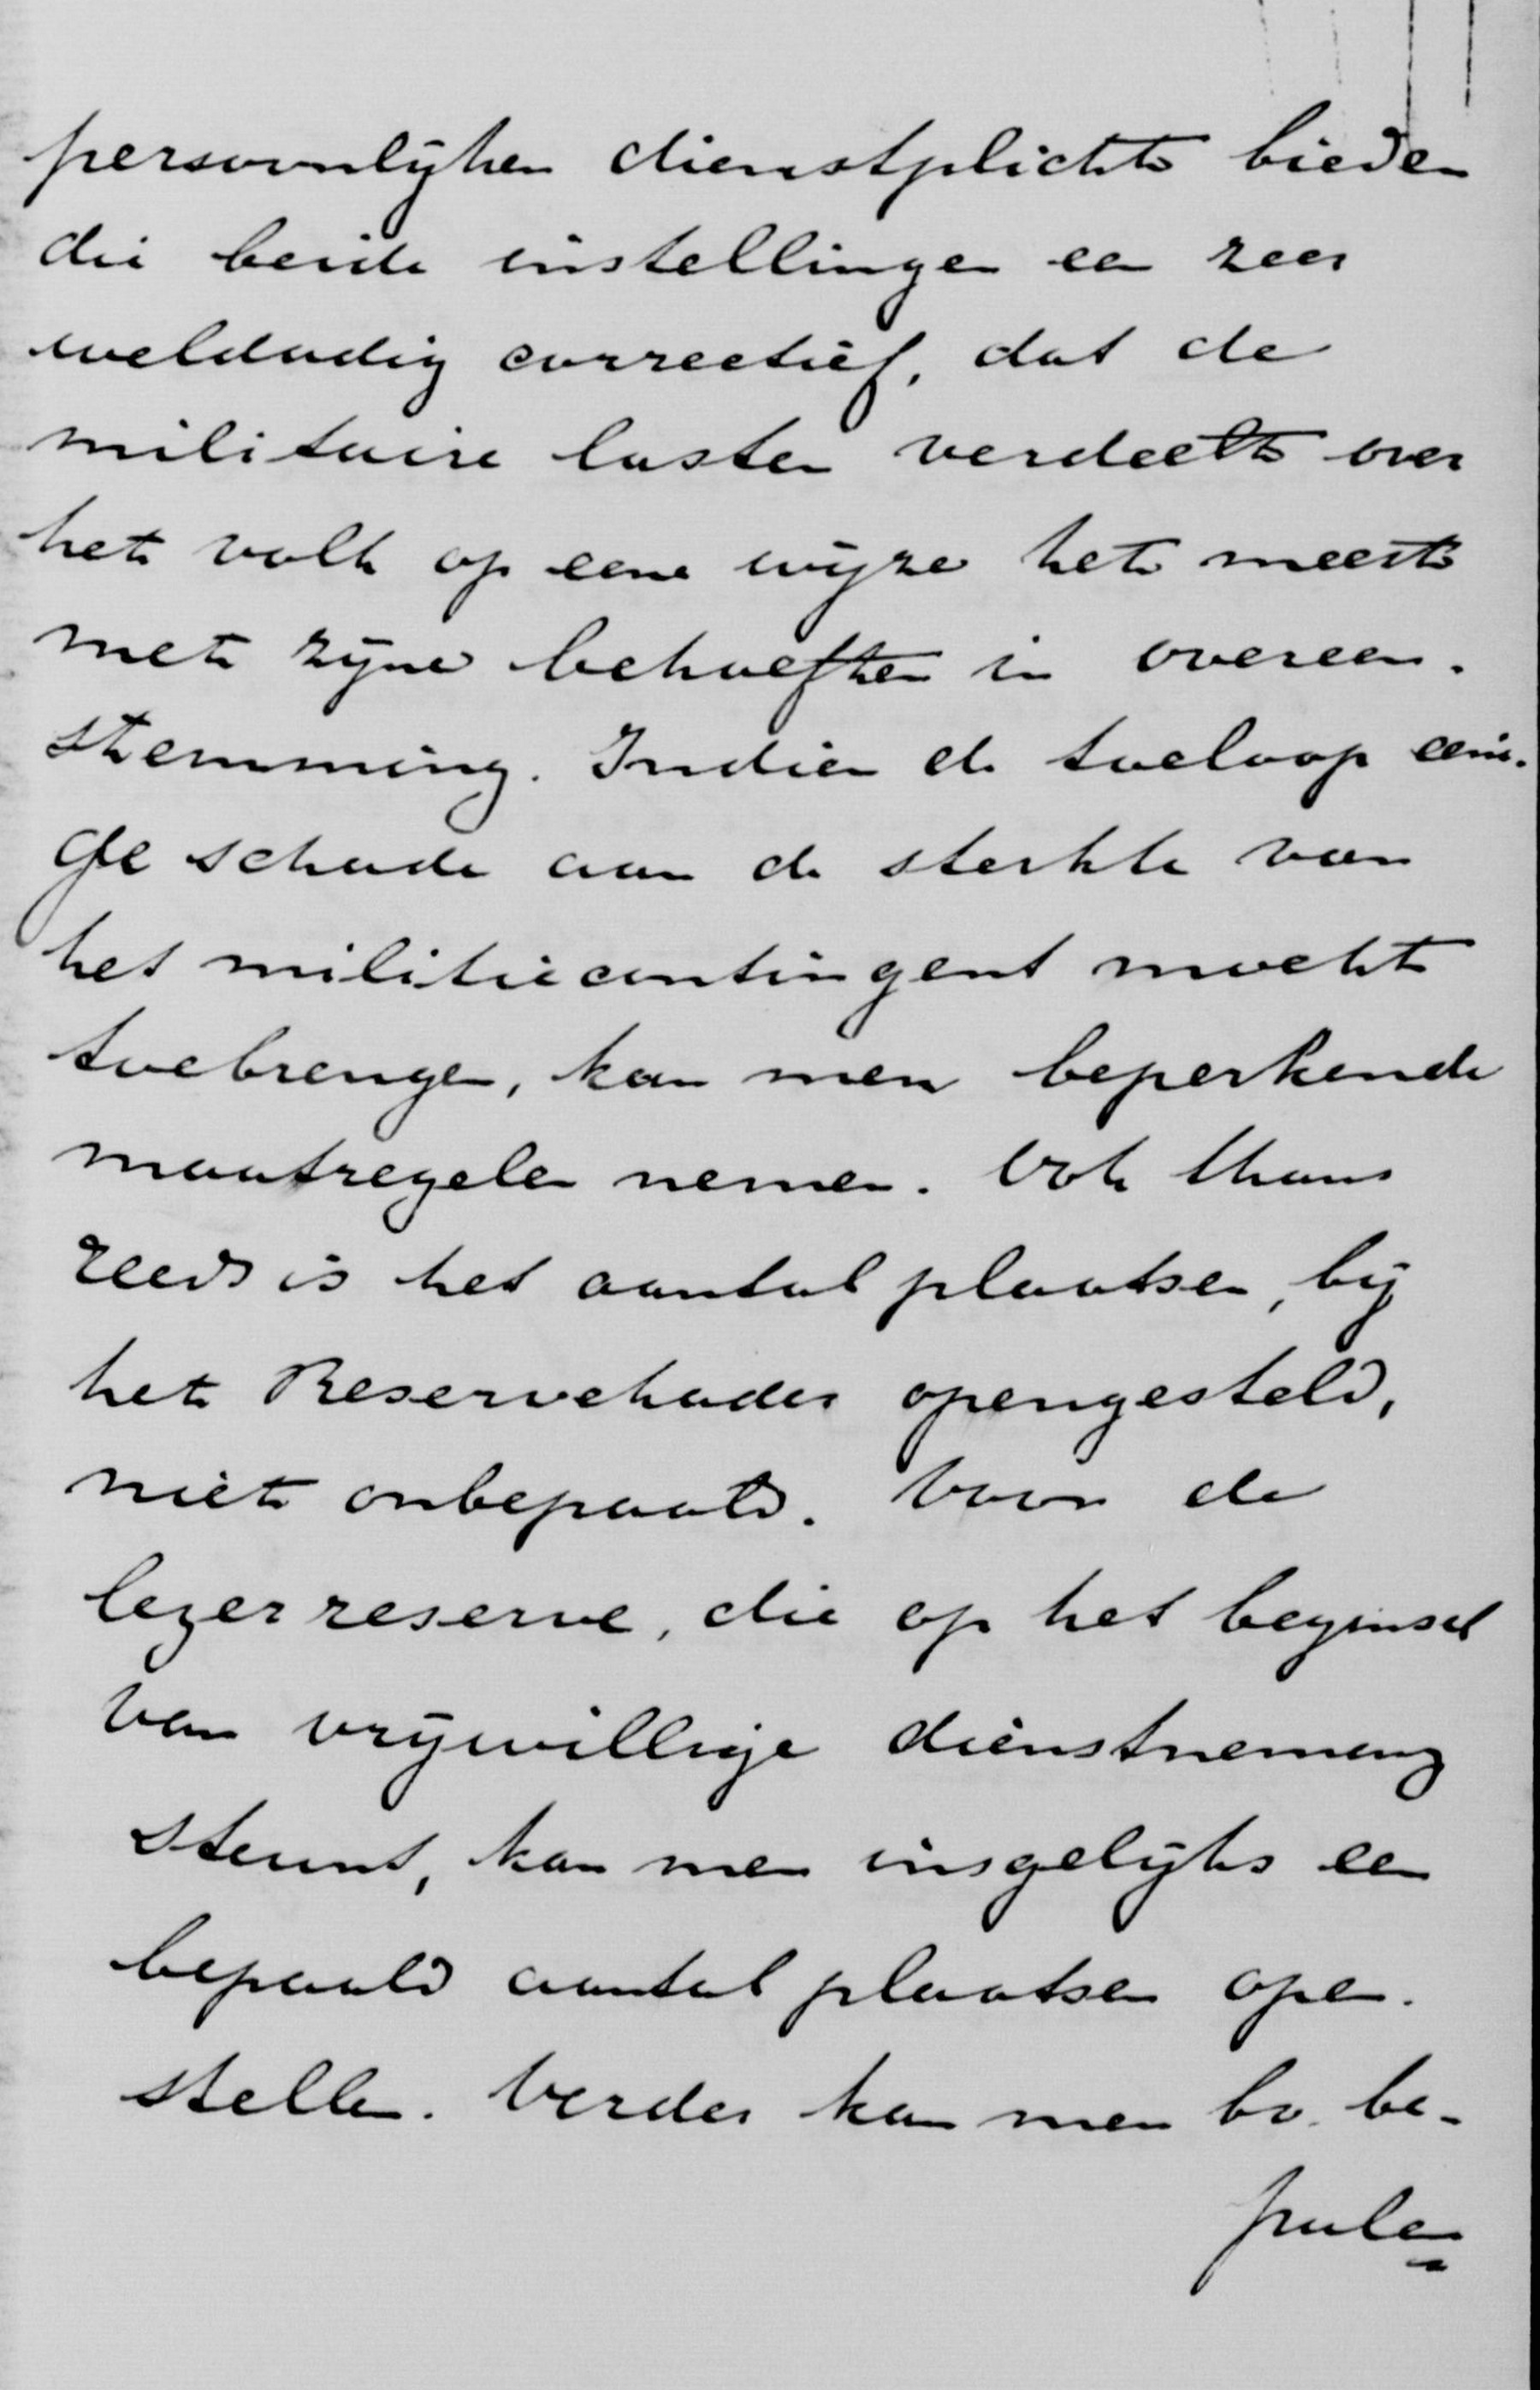 persoonlijken dienstplicht bieden
die beide instellingen een zeer
weldadig correctief, dat de
militaire lasten verdeelt over
het volk op eene wijze het meest
met zijne behoeften in overeen-
stemming. Indien de toeloop eeni-
ge schade aan de sterkte van
het militiecontingent mocht
toebrengen, kan men beperkende
maatregelen nemen. Ook thans
reeds is het aantal plaatsen, bij
het Reservekader opengesteld,
niet onbepaald. Voor de
legerreserve, die op het beginsel
van vrijwillige dienstneming
steunt, kan men insgelijks een
bepaald aantal plaatsen open-
stellen. Verder kan men bv. be-
palen